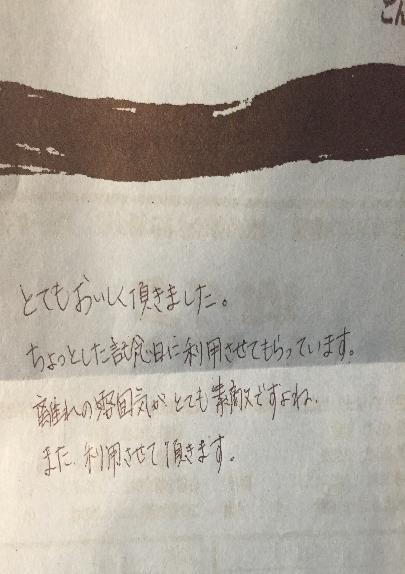 こん
とてもおいしく頂きました。
ちょっとした記念日に利用させてもらっています。
離れの雰囲気がとても素敵ですよね。
また、利用させて頂きます。